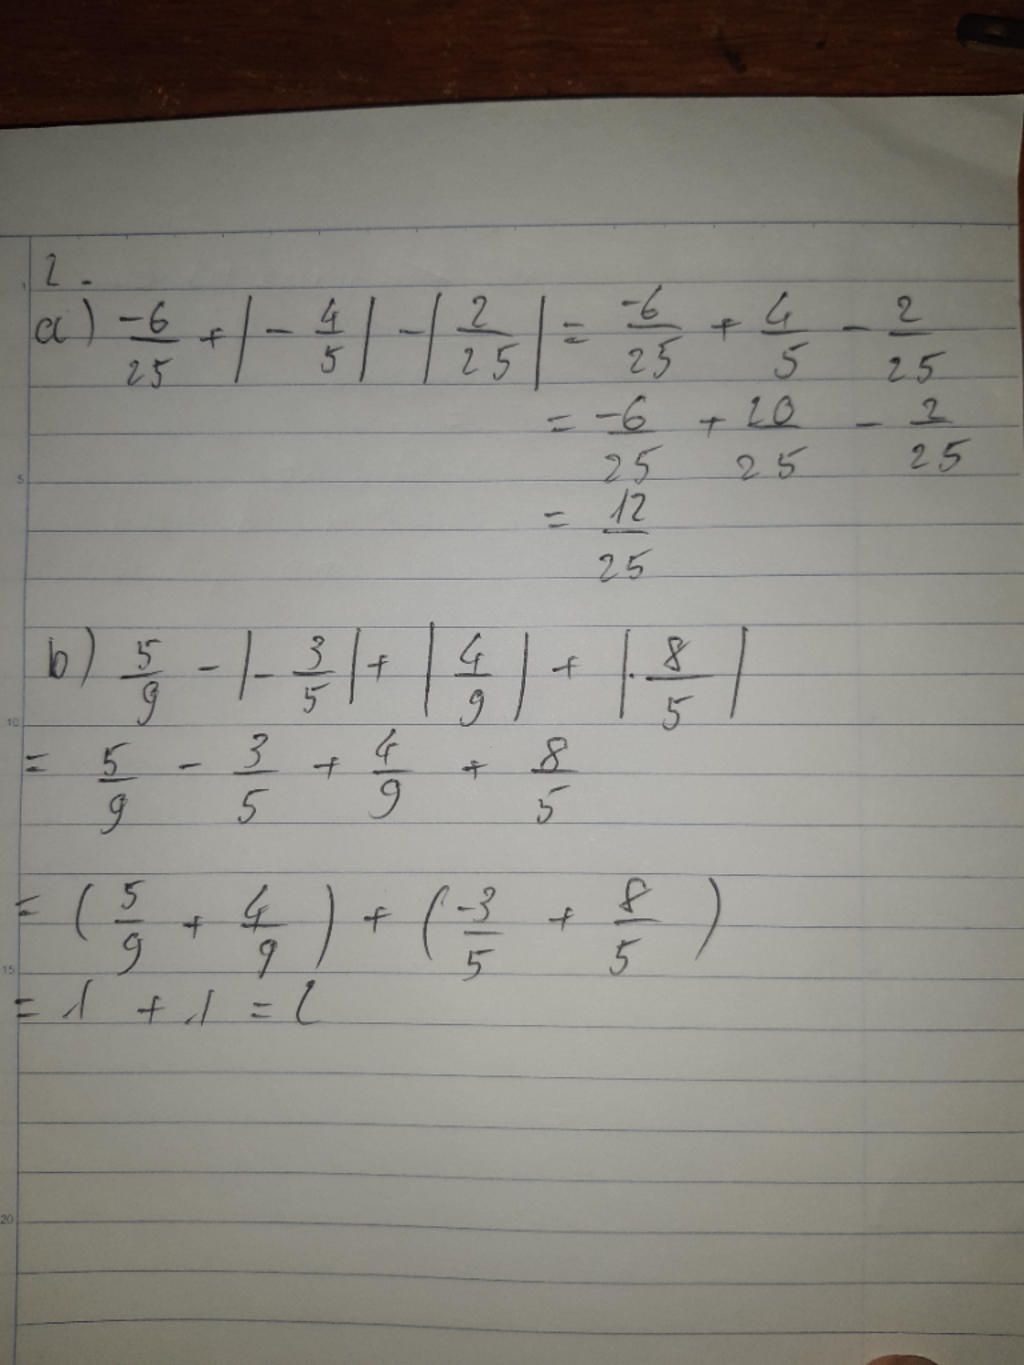 2.
a) -6/25 + |- 4/5| - |2/25| = -6/25 + 4/5 - 2/25
= -6/25 + 20/25 - 2/25
= 12/25
b) 5/9 - |- 3/5| + |4/9| + |- 8/5|
= 5/9 - 3/5 + 4/9 + 8/5
= (5/9 + 4/9) + (-3/5 + 8/5)
= 1 + 1 = 2
1
5
10
15
20